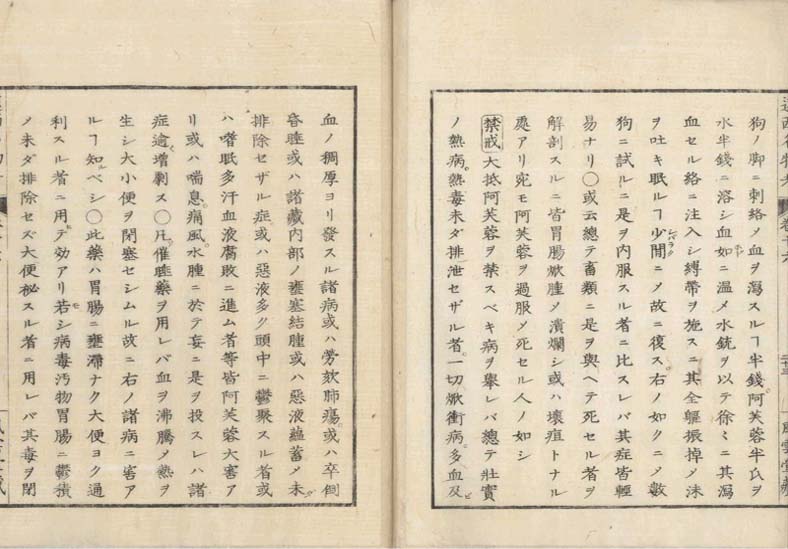 狗ノ脚ニ刺絡メ血ヲ瀉スルヿ半錢。阿芙蓉半氏ヲ
水半錢ニ溶シ血如ニ温メ水銃ヲ以テ徐ニ其瀉
血セル絡ニ注入シ縛帶ヲ施スニ其全軀振掉メ沫
ヲ吐キ眠ルヿ少閒ニメ故ニ復ス。右ノ如クニメ數
狗ニ試ルニ是ヲ内服スル者ニ比スレバ其症皆輕
易ナリ〇或云總テ畜類ニ是ヲ與ヘテ死セル者ヲ
解剖スルニ皆胃膓焮腫メ潰爛シ或ハ壞疽トナル
アリ宛モ阿芙蓉ヲ過服メ死セル人ノ如シ
禁戒 大抵阿芙蓉ヲ禁スベキ病ヲ擧レバ總テ壯實
ノ熱病。熱毒未ダ排泄セザル者。一切焮衝病。多血及ビ
血ノ稠厚ヨリ發スル諸病或ハ勞欬肺瘍。或ハ卒倒
昏睡或ハ諸藏内部ノ壅塞結腫或ハ惡液蘊蓄メ未ダ
排除セザル症或ハ惡液多ク頭中ニ鬱聚スル者或
ハ嗜眠多汗血液腐敗ニ進ム者等皆阿芙蓉大害ア
リ或ハ喘息。痛風。水腫ニ於テ妄ニ是ヲ投スレハ諸
症逾増劇ス〇凡催睡藥ヲ用レバ血ヲ沸騰メ熱ヲ
生シ大小便ヲ閉塞セシムル故ニ右ノ諸病ニ害ア
ルヿ知ベシ〇此藥ハ胃膓ニ壅滯ナク大便ヨク通
利スル者ニ用テ効アリ若シ病毒汚物胃膓ニ鬱積
メ未ダ排除セズ大便秘スル者ニ用レバ其毒ヲ閉